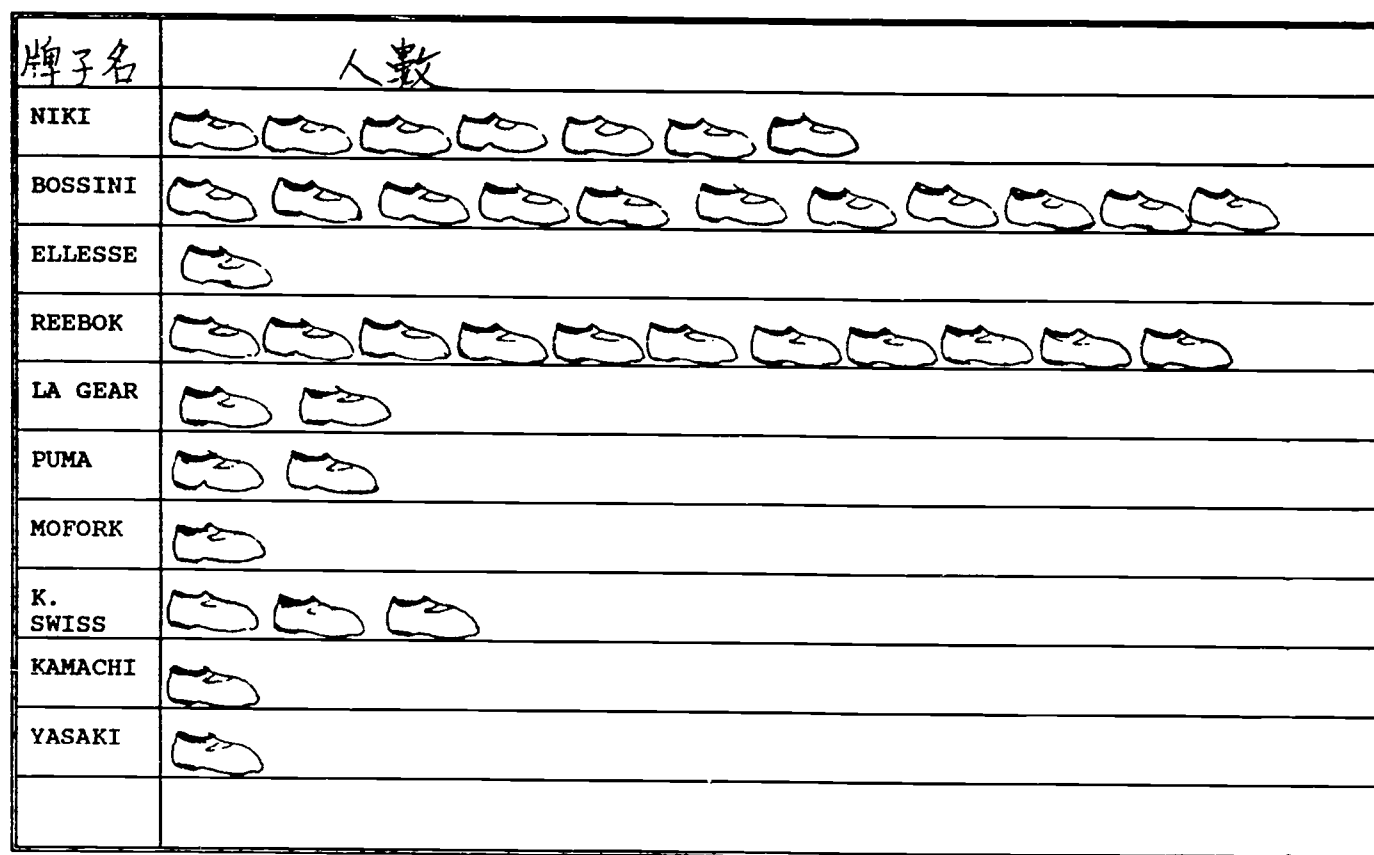 牌子名 人數
NIKI
BOSSINI
ELLESSE
REEBOK
LA GEAR
PUMA
MOFORK
K.
SWISS
KAMACHI
YASAKI